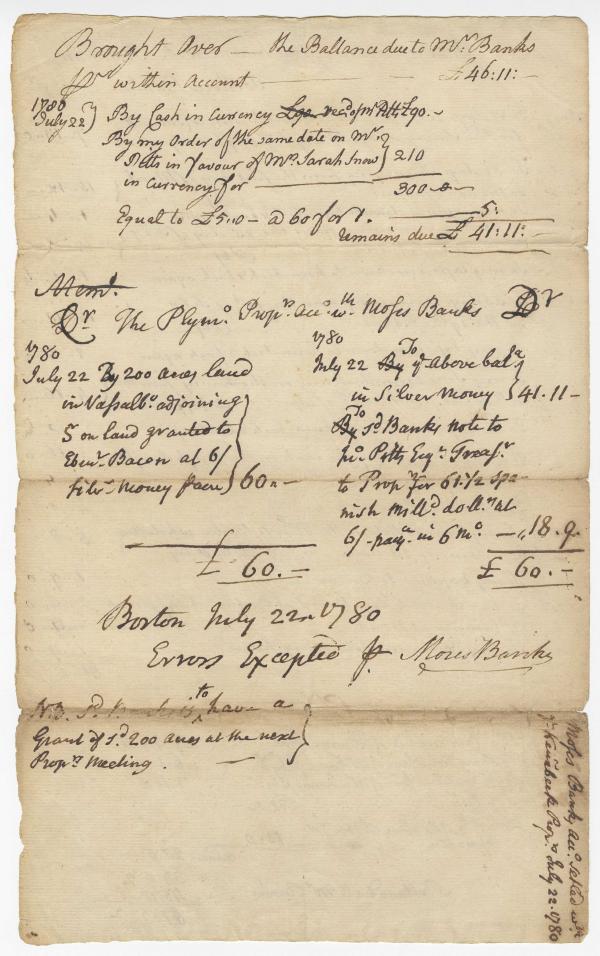 Brought Over — the Ballance due to Mr. Banks
pr. within account — £46:11:–
1780
July 22 } By Cash in Currency £90 recd of Mr. Pitts £90.–
By my Order of the same date on Mr.
Pitts in favour of Mrs. Sarah Snow } 210
in Currency for — 300
Equal to £5..0 – a 60 for 1. — 5:
remains due £ 41:11:–
Memo.
Cr The Plymo. Proprs. Acco. wth. Moses Banks Dr
1780
July 22 By 200 acres land
in Vassalbo. adjoining
S on land granted to
Ebenr. Bacon at 6/
silvr. Money pr acre } 60..–
£ 60.–
1780
July 22 By To ye above bala.
in Silver Money } 41.11–
By To sd. Banks note to
Jno. Pitts Esqr. Treasr.
to Propr. for 61 1/2 spa–
nish milld. dollrs. at
6/– paya. in 6 mo. — 18.9.
£ 60.–
Boston July 22d 1780
Errors Excepted pr. Moses Banks
N.B. Sd. Banks is to have a
Grant of sd. 200 acres at the next
Proprs. Meeting. —
Moses Banks Acco. settled wth.
ye. Kennebeck Proprs. July 22. 1780